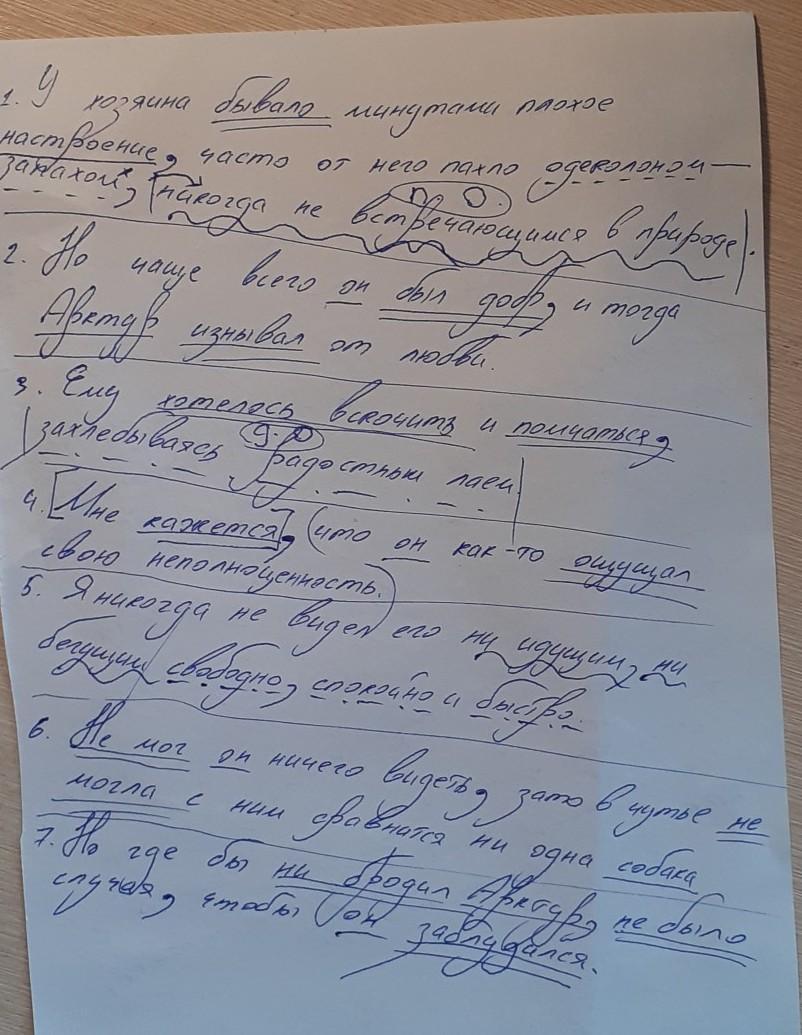 1. У хозяина бывало минутами плохое
настроение, часто от него пахло одеколоном —
запахом, никогда не встречающимся в природе.
п. о.
2. Но чаще всего он был добр, и тогда
Арктур изнывал от любви.
3. Ему хотелось вскочить и помчаться,
д. о.
захлебываясь радостным лаем.
4. [Мне кажется], (что он как-то ощущал
свою неполноценность.)
5. Я никогда не видел его ни идущим, ни
бегущим свободно, спокойно и быстро.
6. Не мог он ничего видеть, зато в чутье не
могла с ним сравнится ни одна собака
7. Но где бы ни бродил Арктур, не было
случая, чтобы он заблудился.